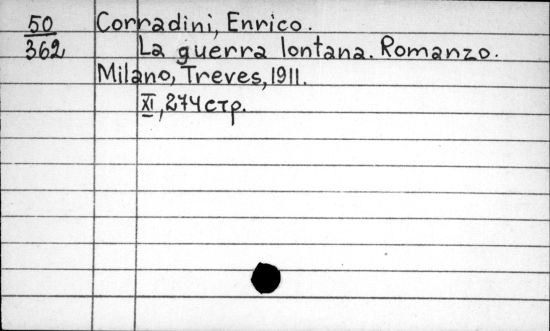 50 Corradini, Enrico.
362 La guerra lontana. Romanzo.
Milano, Treves, 1911.
XI, 274 стр.